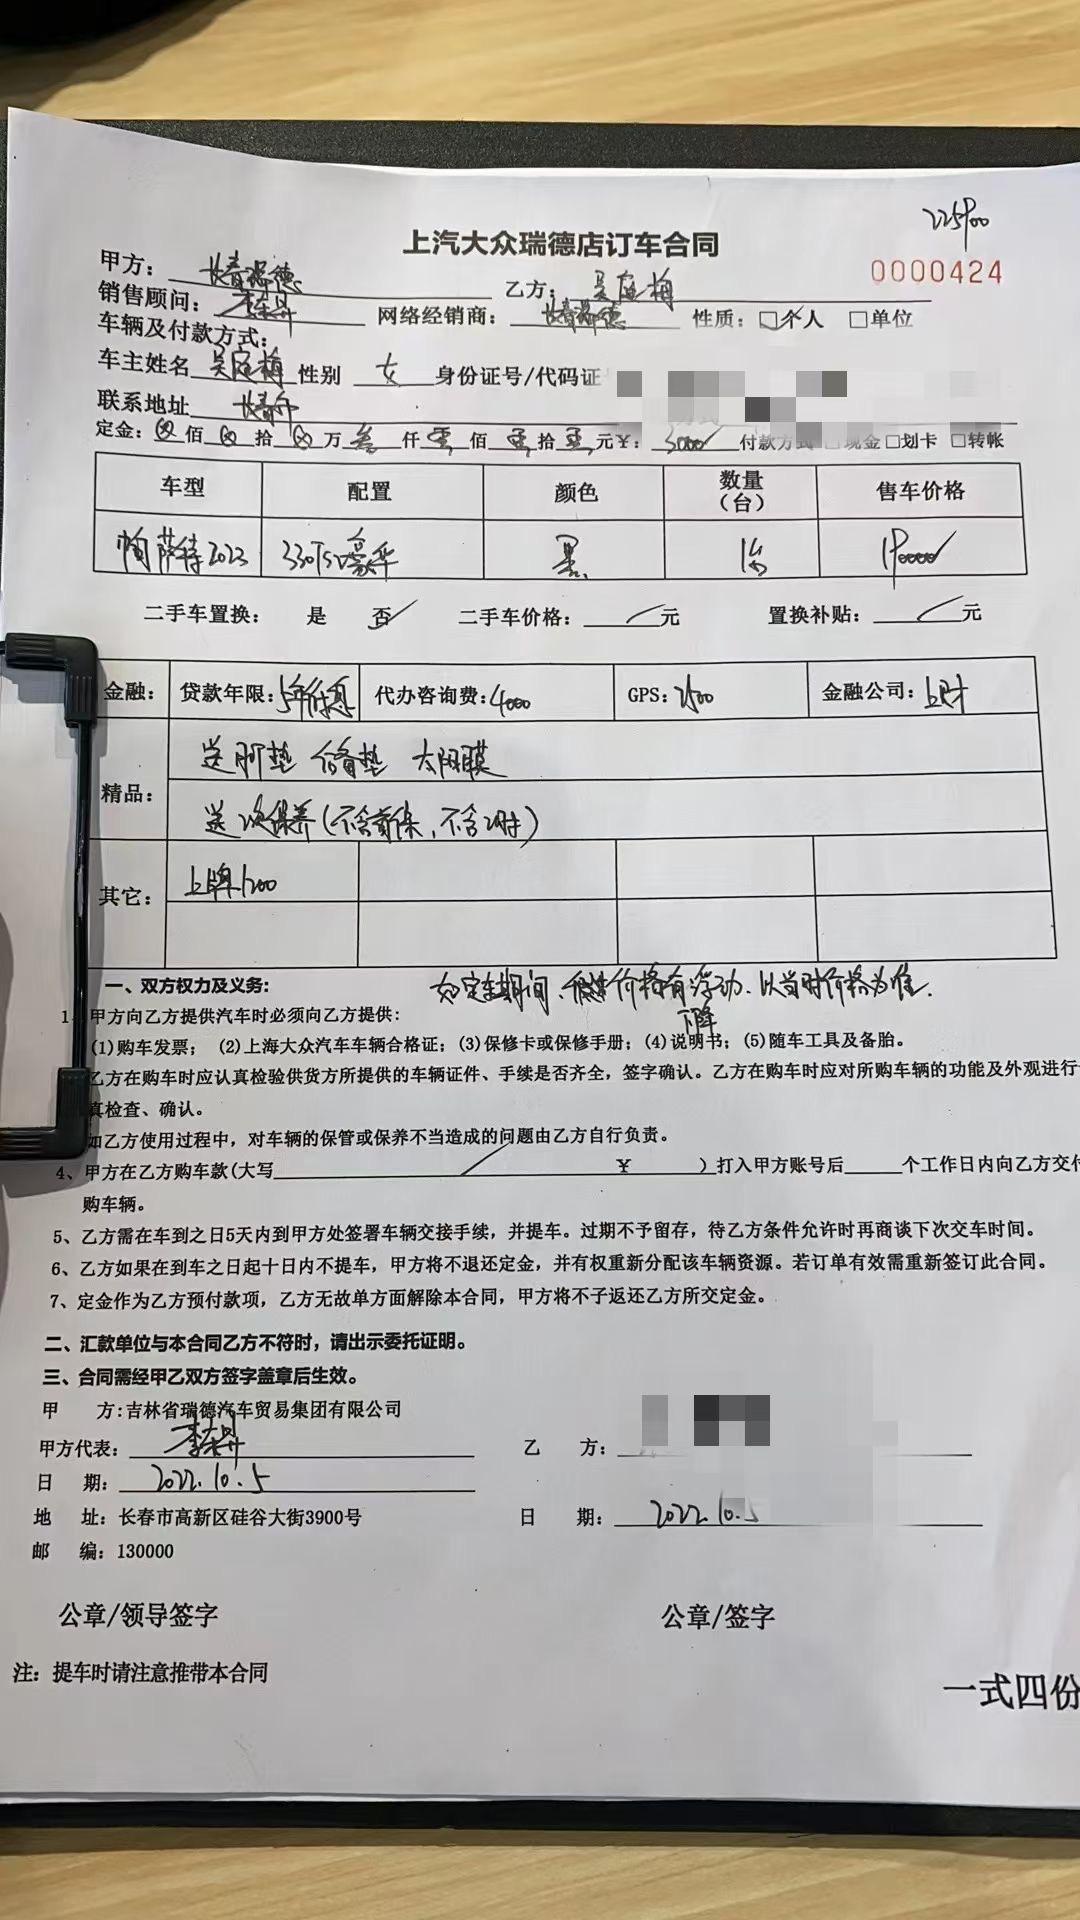 225900
上汽大众瑞德店订车合同
0000424
甲方：长春瑞德 乙方：吴庭梅
销售顾问：李东昇 网络经销商：长春瑞德 性质：☑个人 □单位
车辆及付款方式：
车主姓名 吴庭梅 性别 女 身份证号/代码证
联系地址 长春市
定金：佰 拾 万 叁 仟 零 佰 零 拾 零 元¥：3000 付款方式 □现金 □划卡 □转帐
车型 配置 颜色 数量（台） 售车价格
帕萨特2023 330TSI豪华 黑 1台 190000
二手车置换： 是 否 二手车价格： 元 置换补贴： 元
金融： 贷款年限：5年付息 代办咨询费：4000 GPS：2500 金融公司：上财
精品：
送脚垫 后备垫 太阳膜
送2次保养（不含首保，不含工时）
其它： 上牌1200
一、双方权力及义务： 如定车期间、价格有浮动、以当时价格为准.
下降
1、甲方向乙方提供汽车时必须向乙方提供：
(1)购车发票； (2)上海大众汽车车辆合格证；(3)保修卡或保修手册；(4)说明书；(5)随车工具及备胎。
乙方在购车时应认真检验供货方所提供的车辆证件、手续是否齐全，签字确认。乙方在购车时应对所购车辆的功能及外观进行
真检查、确认。
如乙方使用过程中，对车辆的保管或保养不当造成的问题由乙方自行负责。
4、甲方在乙方购车款(大写 ¥ ）打入甲方账号后 个工作日内向乙方交付
购车辆。
5、乙方需在车到之日5天内到甲方处签署车辆交接手续，并提车。过期不予留存，待乙方条件允许时再商谈下次交车时间。
6、乙方如果在到车之日起十日内不提车，甲方将不退还定金，并有权重新分配该车辆资源。若订单有效需重新签订此合同。
7、定金作为乙方预付款项，乙方无故单方面解除本合同，甲方将不予返还乙方所交定金。
二、汇款单位与本合同乙方不符时，请出示委托证明。
三、合同需经甲乙双方签字盖章后生效。
甲 方：吉林省瑞德汽车贸易集团有限公司
甲方代表：李东昇 乙 方：
日 期：2022.10.5
地 址：长春市高新区硅谷大街3900号 日 期：2022.10.5
邮 编：130000
公章/领导签字 公章/签字
注：提车时请注意推带本合同
一式四份